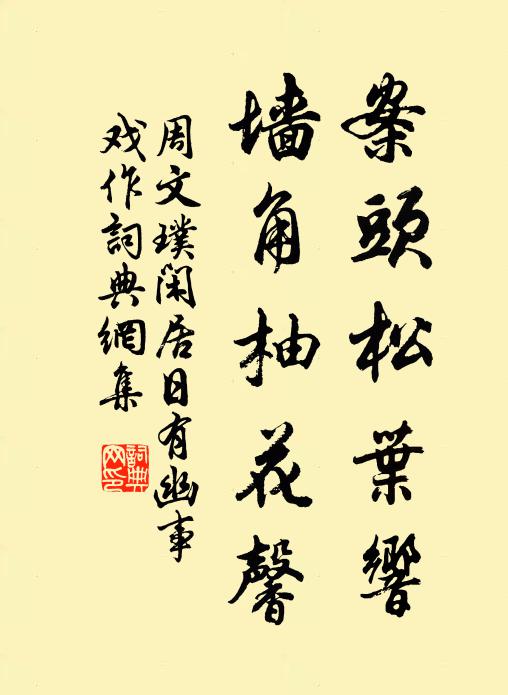 案頭松葉響
墙角柚花馨
周文璞閑居日有幽事
戏作詞典網集
詞典
网印